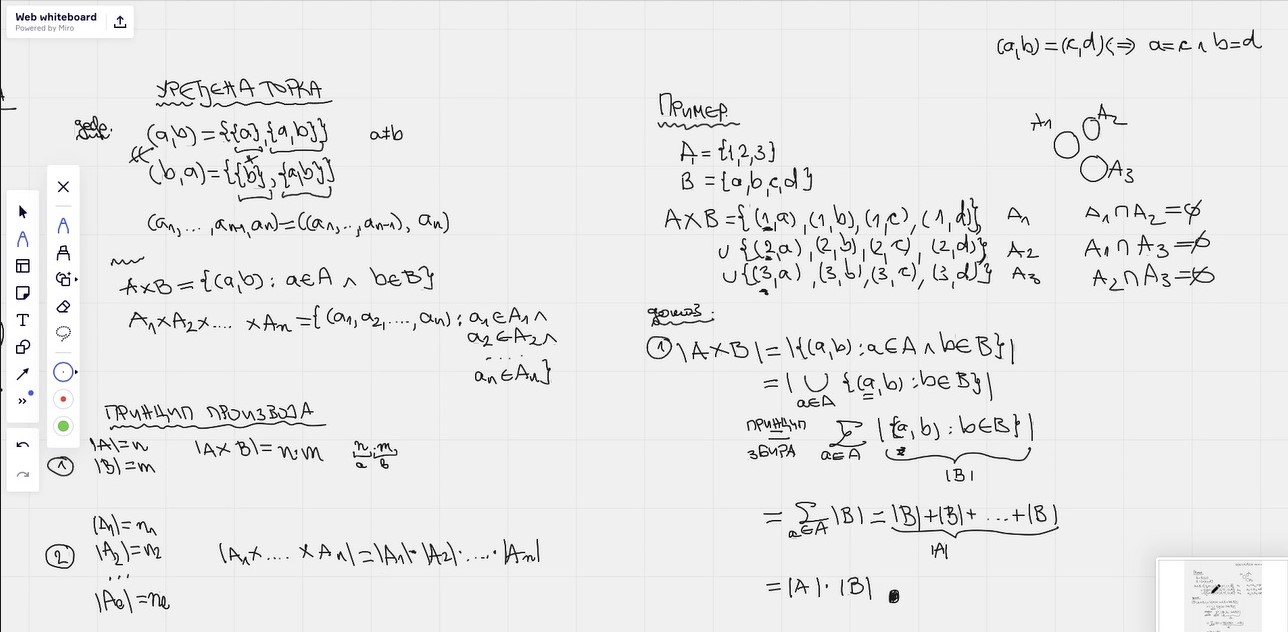 Web whiteboard
Powered by Miro
УРЕЂЕНА ТОРКА
деф. (a,b)={{a},{a,b}} a≠b
(b,a)={{b},{a,b}}
(a₁,...,aₙ₋₁,aₙ)=((a₁,..,aₙ₋₁), aₙ)
A×B={(a,b): a∈A ∧ b∈B}
A₁×A₂×.... ×Aₙ={(a₁,a₂,....,aₙ): a₁∈A₁∧
a₂∈A₂∧
....
aₙ∈Aₙ}
ПРИНЦИП ПРОИЗВОДА
① |A|=n
|B|=m
|A×B|=n·m n/a · m/b
② |A₁|=n₁
|A₂|=n₂
...
|Aₑ|=nₑ
|A₁×.... ×Aₙ|=|A₁|·|A₂|·....·|Aₙ|
(a,b)=(c,d)⇔ a=c ∧ b=d
ПРИМЕР
A={1,2,3}
B={a,b,c,d}
A×B={(1,a),(1,b),(1,c),(1,d)} A₁
∪{(2,a),(2,b),(2,c),(2,d)} A₂
∪{(3,a),(3,b),(3,c),(3,d)} A₃
A₁ A₂
A₃
A₁∩A₂=∅
A₁∩A₃=∅
A₂∩A₃=∅
доказ:
① |A×B|=|{(a,b): a∈A ∧ b∈B}|
=|∪ {(a,b): b∈B}|
a∈A
ПРИНЦИП ЗБИРА ∑ |{a,b): b∈B}|
a∈A
|B|
= ∑ |B|=|B|+|B|+ ...+|B|
a∈A
|A|
=|A|·|B|